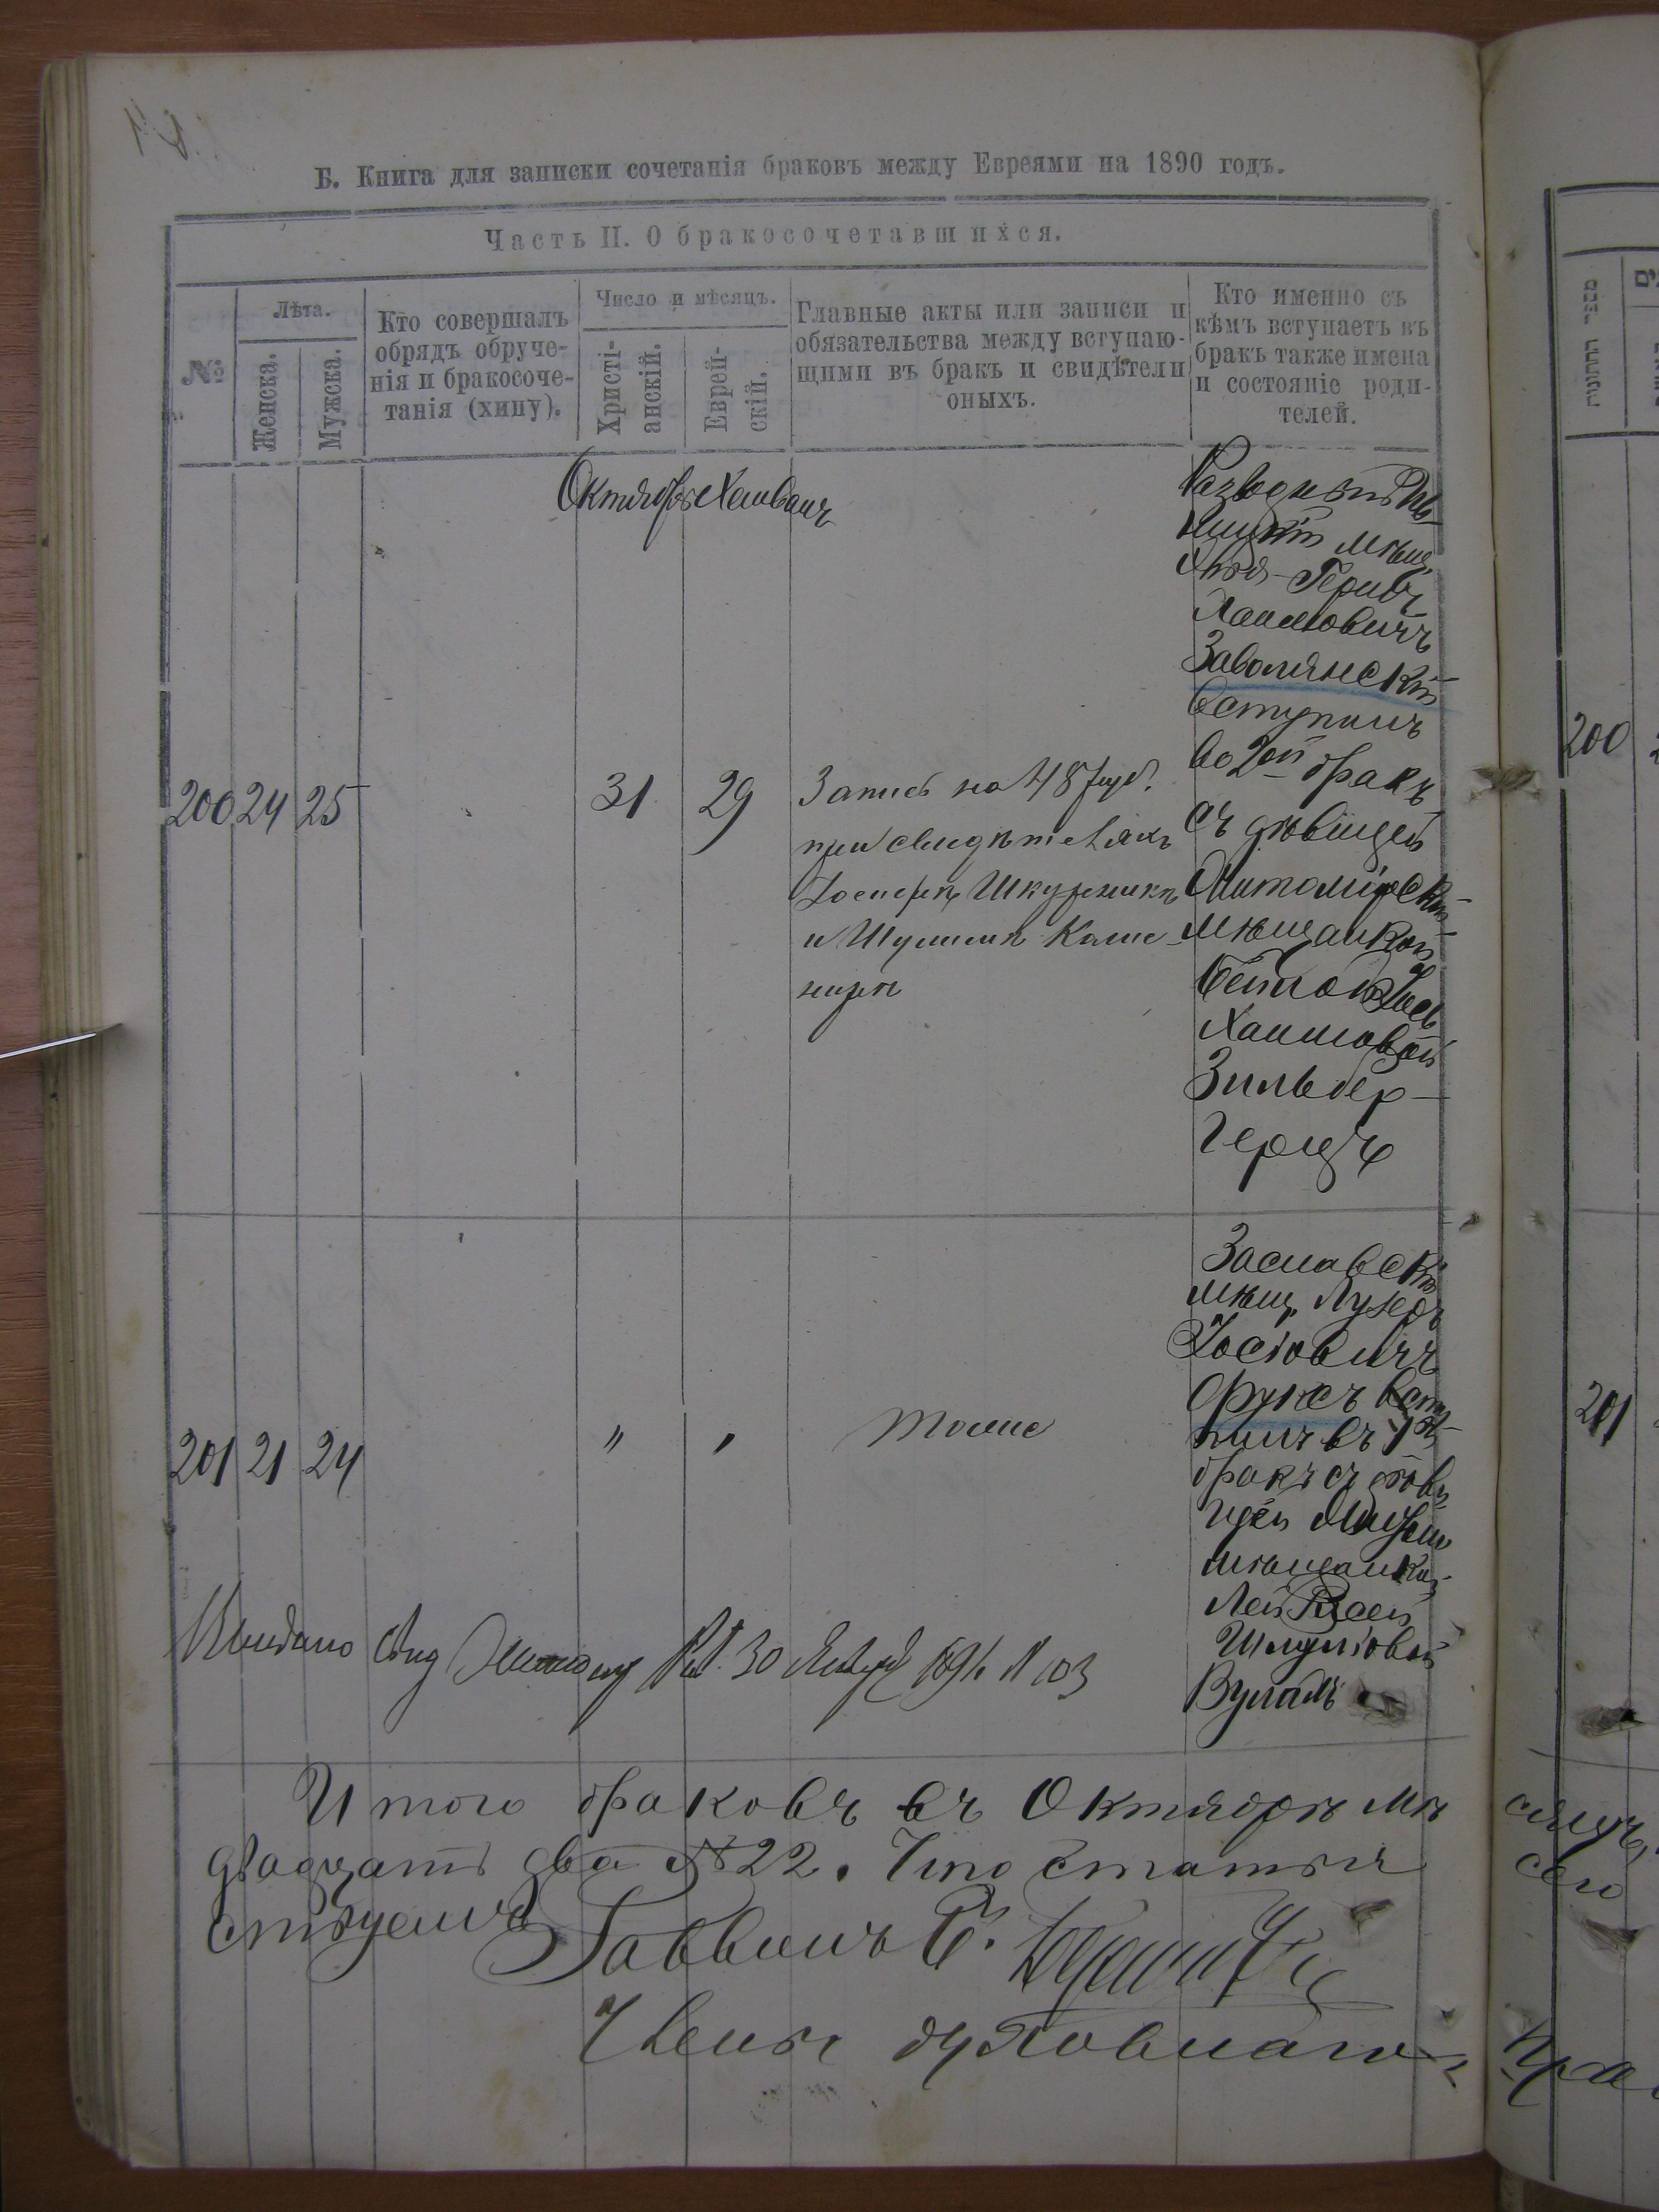 Б. Книга для записки сочетанія браковъ между Евреями на 1890 годъ.
Часть II. О бракосочетавшихся.
№
Лѣта.
Женска.
Мужска.
Кто совершалъ
обрядъ обруче-
нія и бракосоче-
танія (хипу).
Число и мѣсяцъ.
Христі-
анскій.
Еврей-
скій.
Главные акты или записи и
обязательства между вступаю-
щими въ бракъ и свидѣтели
оныхъ.
Кто именно съ
кѣмъ вступаетъ въ
бракъ также имена
и состояніе роди-
телей.
Октябрь Хешванъ
200 24 25 31 29
Запись на 48 руб.
при свидѣтеляхъ
Іосифѣ Шкурникѣ
и Шулимѣ Каме-
нирѣ
Разводный
мѣщ.
Герцъ
Хаимовичъ
Заволянскій
вступилъ
во 2ой бракъ
съ дѣвицей
Житомірской
мѣщанкой
Бейлой
Хаимовой
Зильбер-
герцъ
201 21 24 " " тоже
Заславскій
мѣщ. Лузеръ
Іосіовичъ
Фуксъ всту-
пилъ въ 1й
бракъ съ дѣви-
цей
мѣщанкой
Леей Рисей
Шмулговой
Выдано 30 1891 N 103
Итого браковъ въ Октябрѣ мѣ
сяцѣ
двадцать два № 22. Что статьи
сего
Раввинъ
Члены духовнаго
пра
200
201